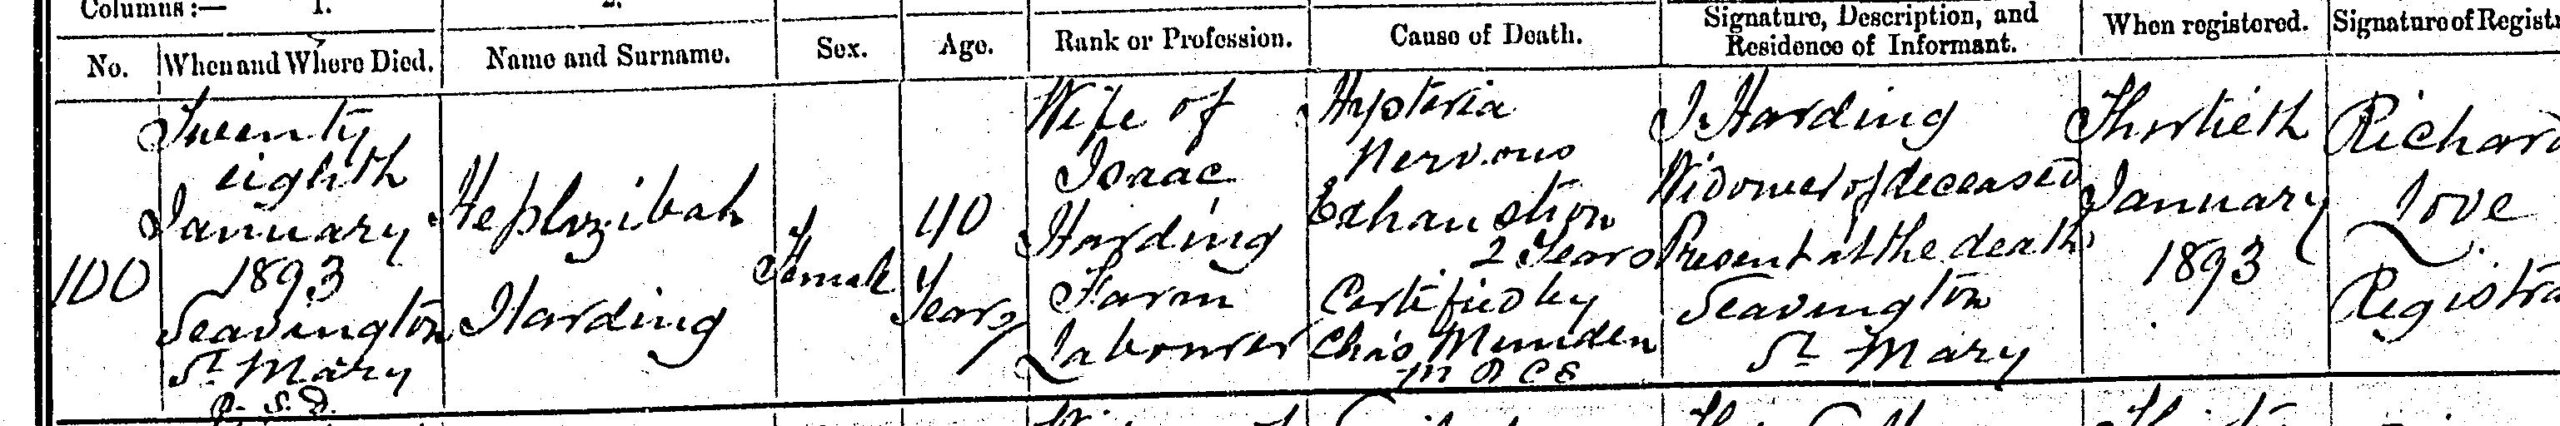 Columns :— 1. 2.
No. When and Where Died. Name and Surname. Sex. Age. Rank or Profession. Cause of Death. Signature, Description, and Residence of Informant. When registered. Signature of Registr
100
Twenty
eighth
January
1893
Seavington
St Mary
R. S. D.
Hephzibah
Harding
Female
40
Years
Wife of
Isaac
Harding
Farm
Labourer
Hysteria
Nervous
Exhaustion
2 Years
Certified by
Chas Munden
M R C S
I Harding
Widower of deceased
Present at the death
Seavington
St Mary
Thirtieth
January
1893
Richard
Love
Registra